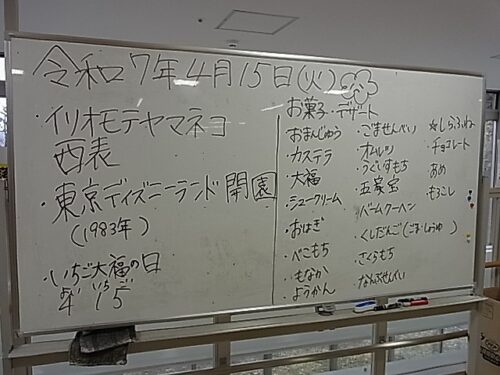 令和7年4月15日(火)
・イリオモテヤマネコ
西表
・東京ディズニーランド開園
(1983年)
・いちご大福の日
よい いちご
4 15
お菓子・デザート
・おまんじゅう
・カステラ
・大福
・シュークリーム
・おはぎ
・べこもち
・もなか
・ようかん
・ごませんべい
・オムレツ
・うぐいすもち
・五家宝
・バームクーヘン
・くしだんご(ごましょうゆ)
・さくらもち
・なんぶせんべい
☆しらふね
・チョコレート
・あめ
・もろこし